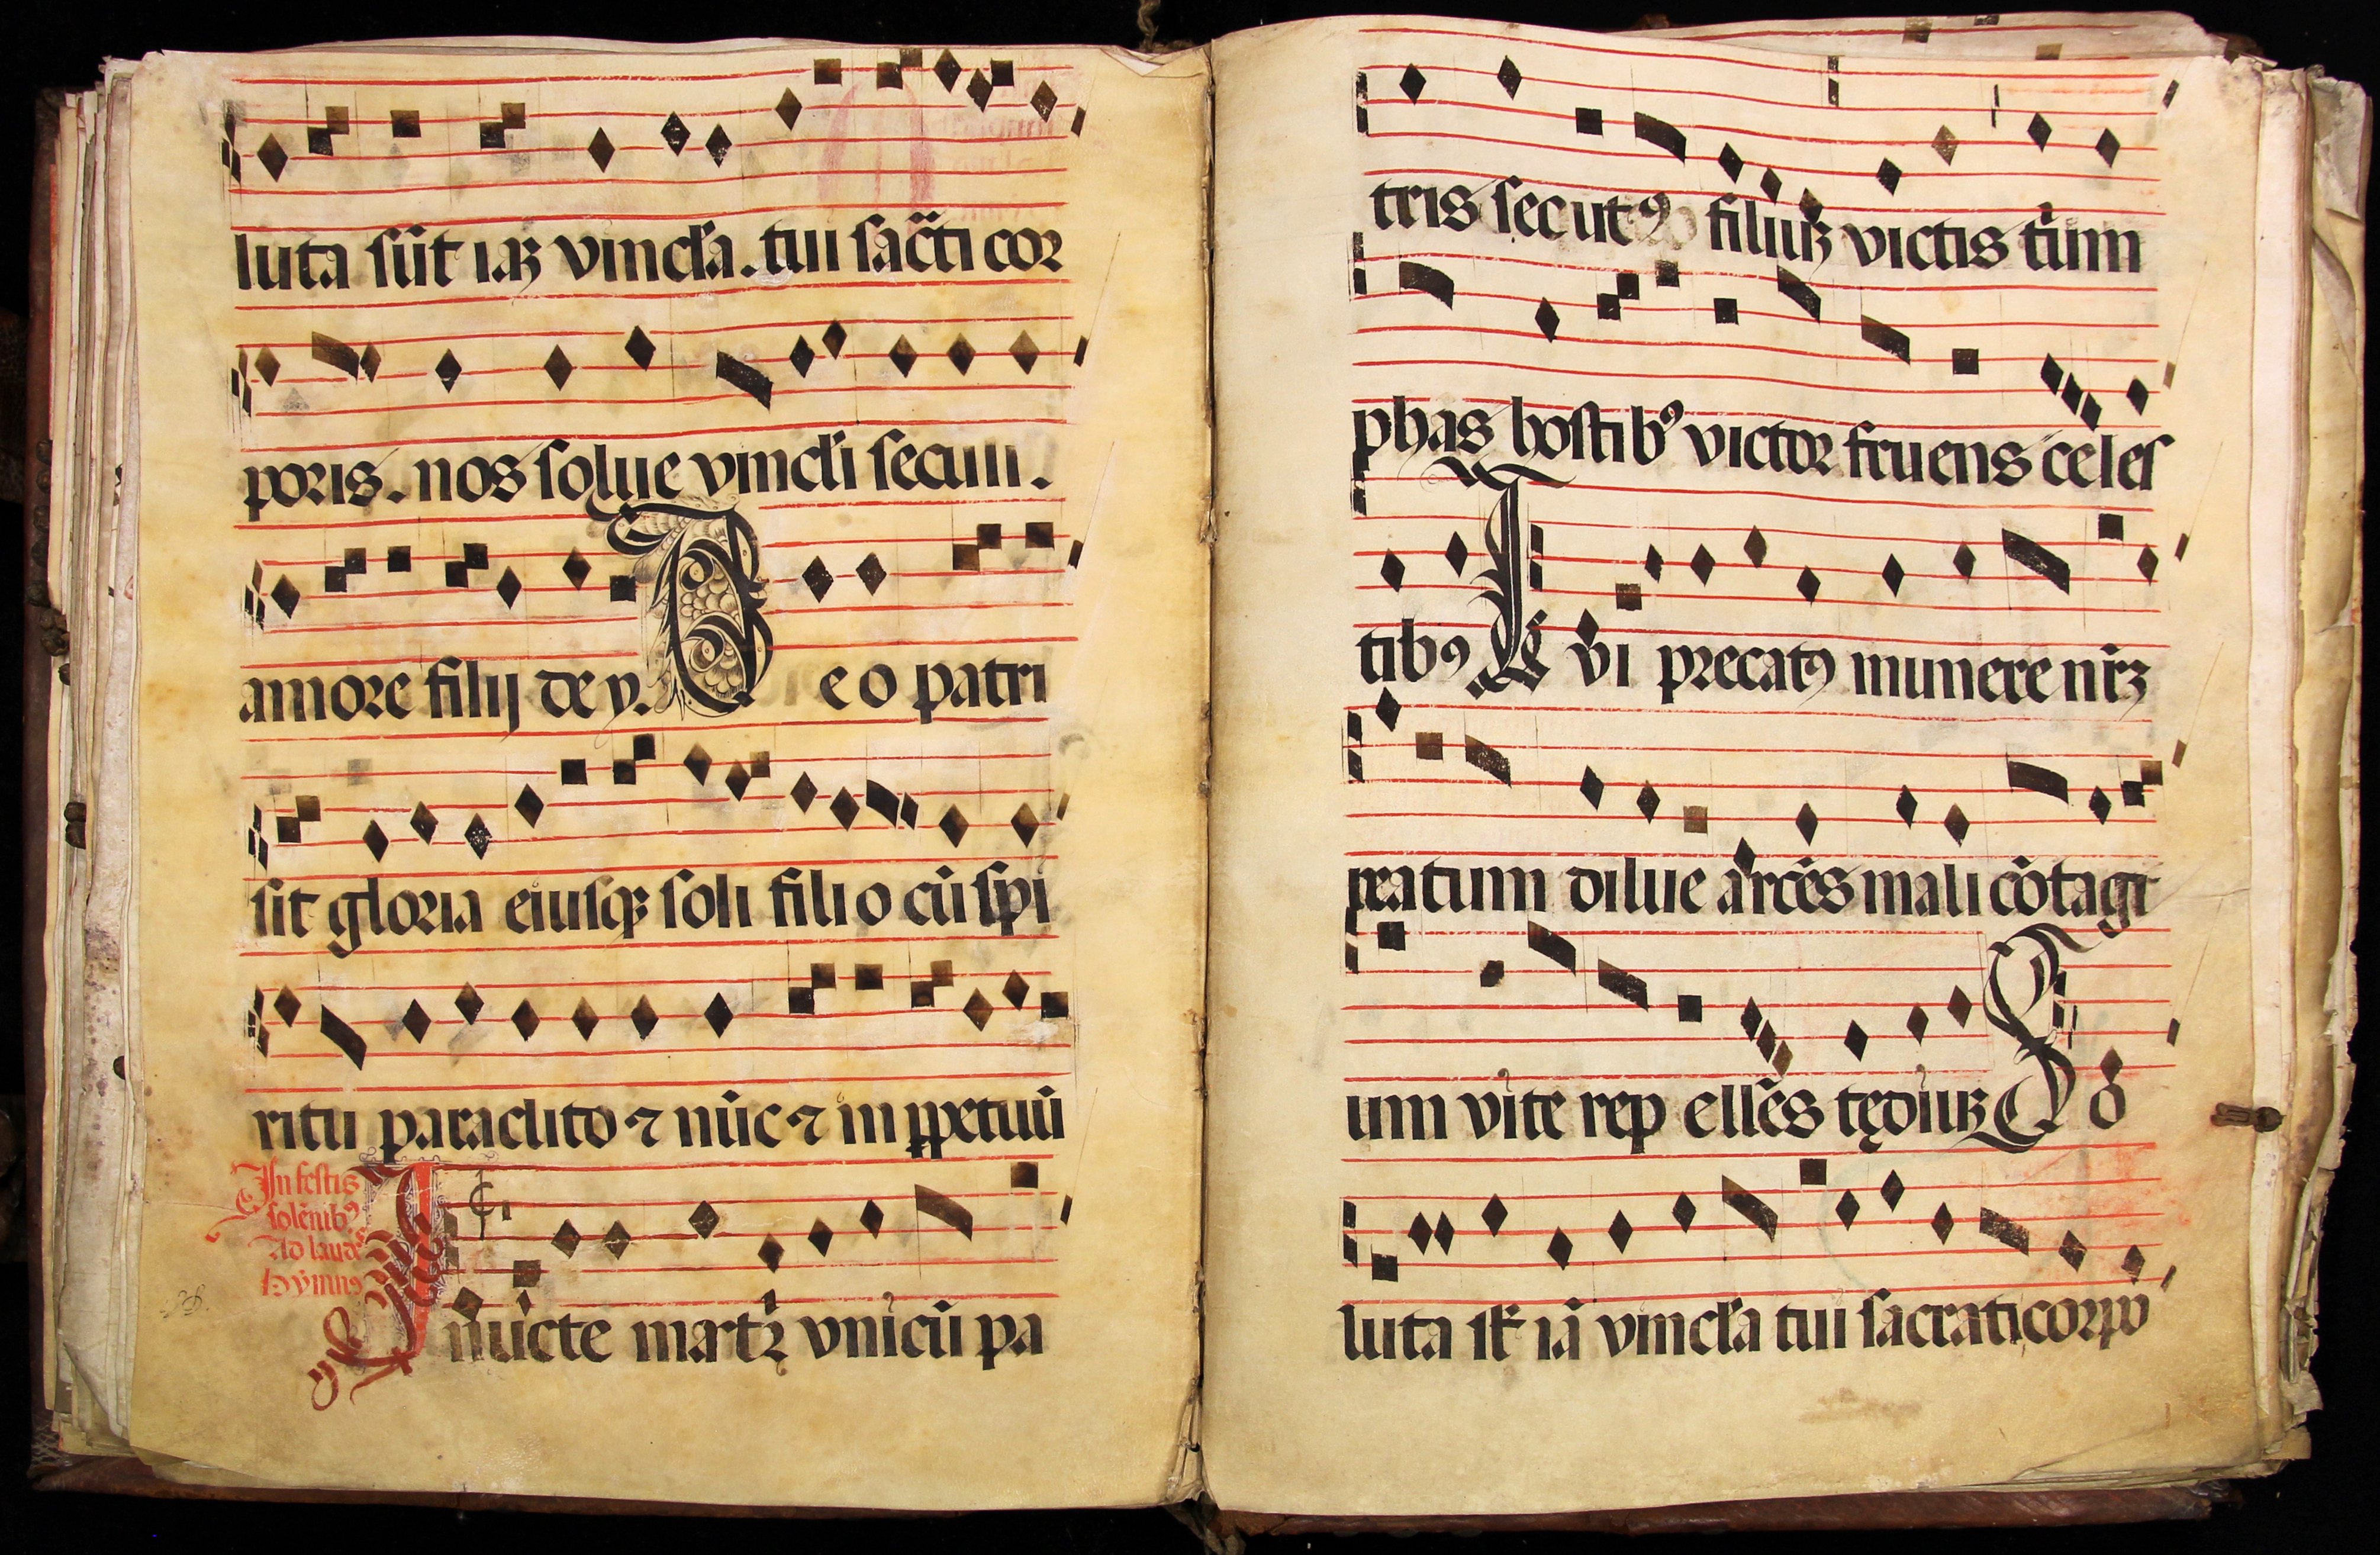 luta sūt iaꝫ vincl̄a. tui sac̄ti cor
poris. nos solue vincl̄i seculi.
amore filij dey. D eo patri
sit gloria eiusqꝫ soli filio cū spi
ritu paraclito ⁊ nūc ⁊ in ꝑpetuū
In festis
solēnibꝰ
Ad laudes
Hymnꝰ
Inuicte martꝛ̄ vnicū pa
tris secutꝰ filiuꝫ victis t̄ium
phas hostibꝰ victor fruens celes
tibꝰ Tui precatꝰ munere nr̄ꝫ
reatum dilue arcēs mali cōtagi
um vite repellēs tędiuꝫ So
luta sūt iā vincl̄a tui sacrati corpo